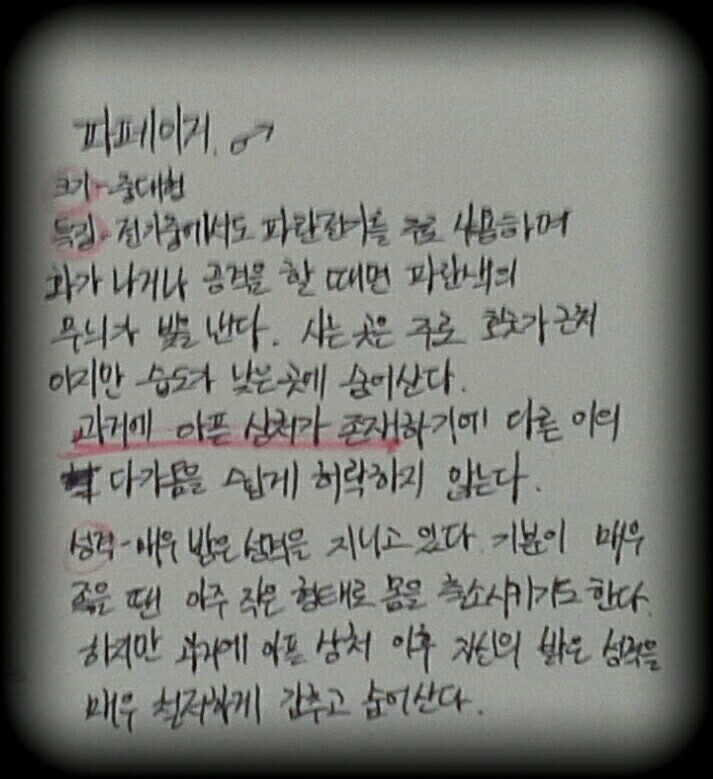 파페이거. ♂
크기 - 중대형
특징 - 전기중에서도 파란전기를 주로 사용하며
화가 나거나 공격을 할 때면 파란색의
무늬가 빛을 낸다. 사는 곳은 주로 호숫가 근처
이지만 습도가 낮은 곳에 숨어산다.
과거에 아픈 상처가 존재하기에 다른 이의
다가옴을 쉽게 허락하지 않는다.
성격 - 매우 밝은 성격을 지니고 있다 기분이 매우
좋을 땐 아주 작은 형태로 몸을 축소시키기도 한다.
하지만 과거에 아픈 상처 이후 자신의 밝은 성격을
매우 철저하게 감추고 숨어산다.